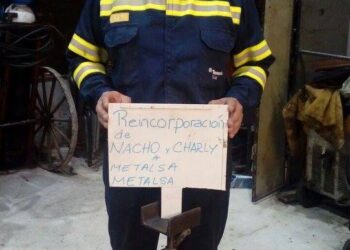 Reincorporación
de
NACHO y CHARLY
A
METALSA
METALSA